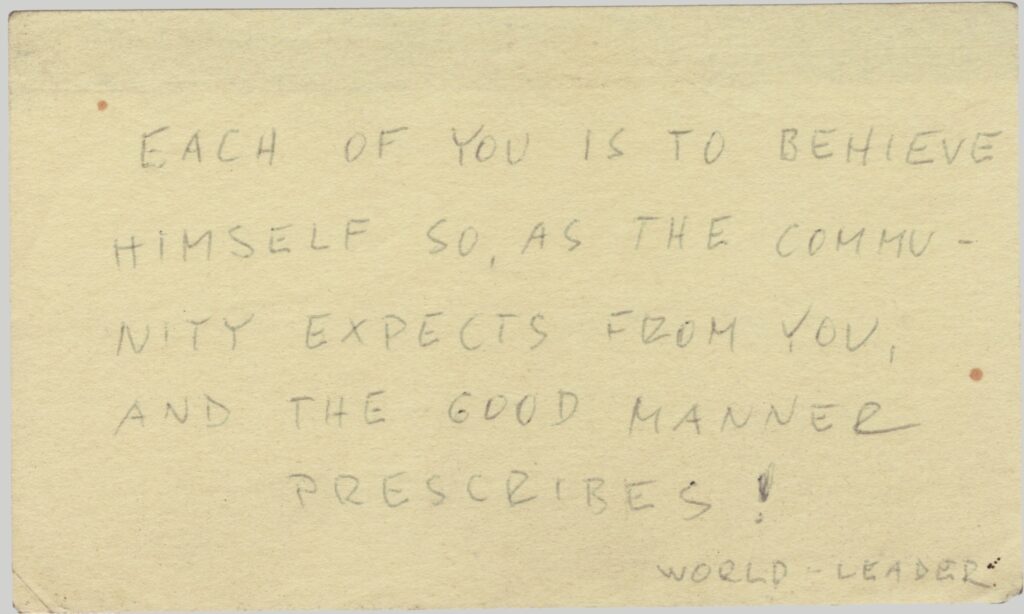 EACH OF YOU IS TO BEHIEVE
HIMSELF SO, AS THE COMMU-
NITY EXPECTS FROM YOU,
AND THE GOOD MANNER
PRESCRIBES!
WORLD-LEADER